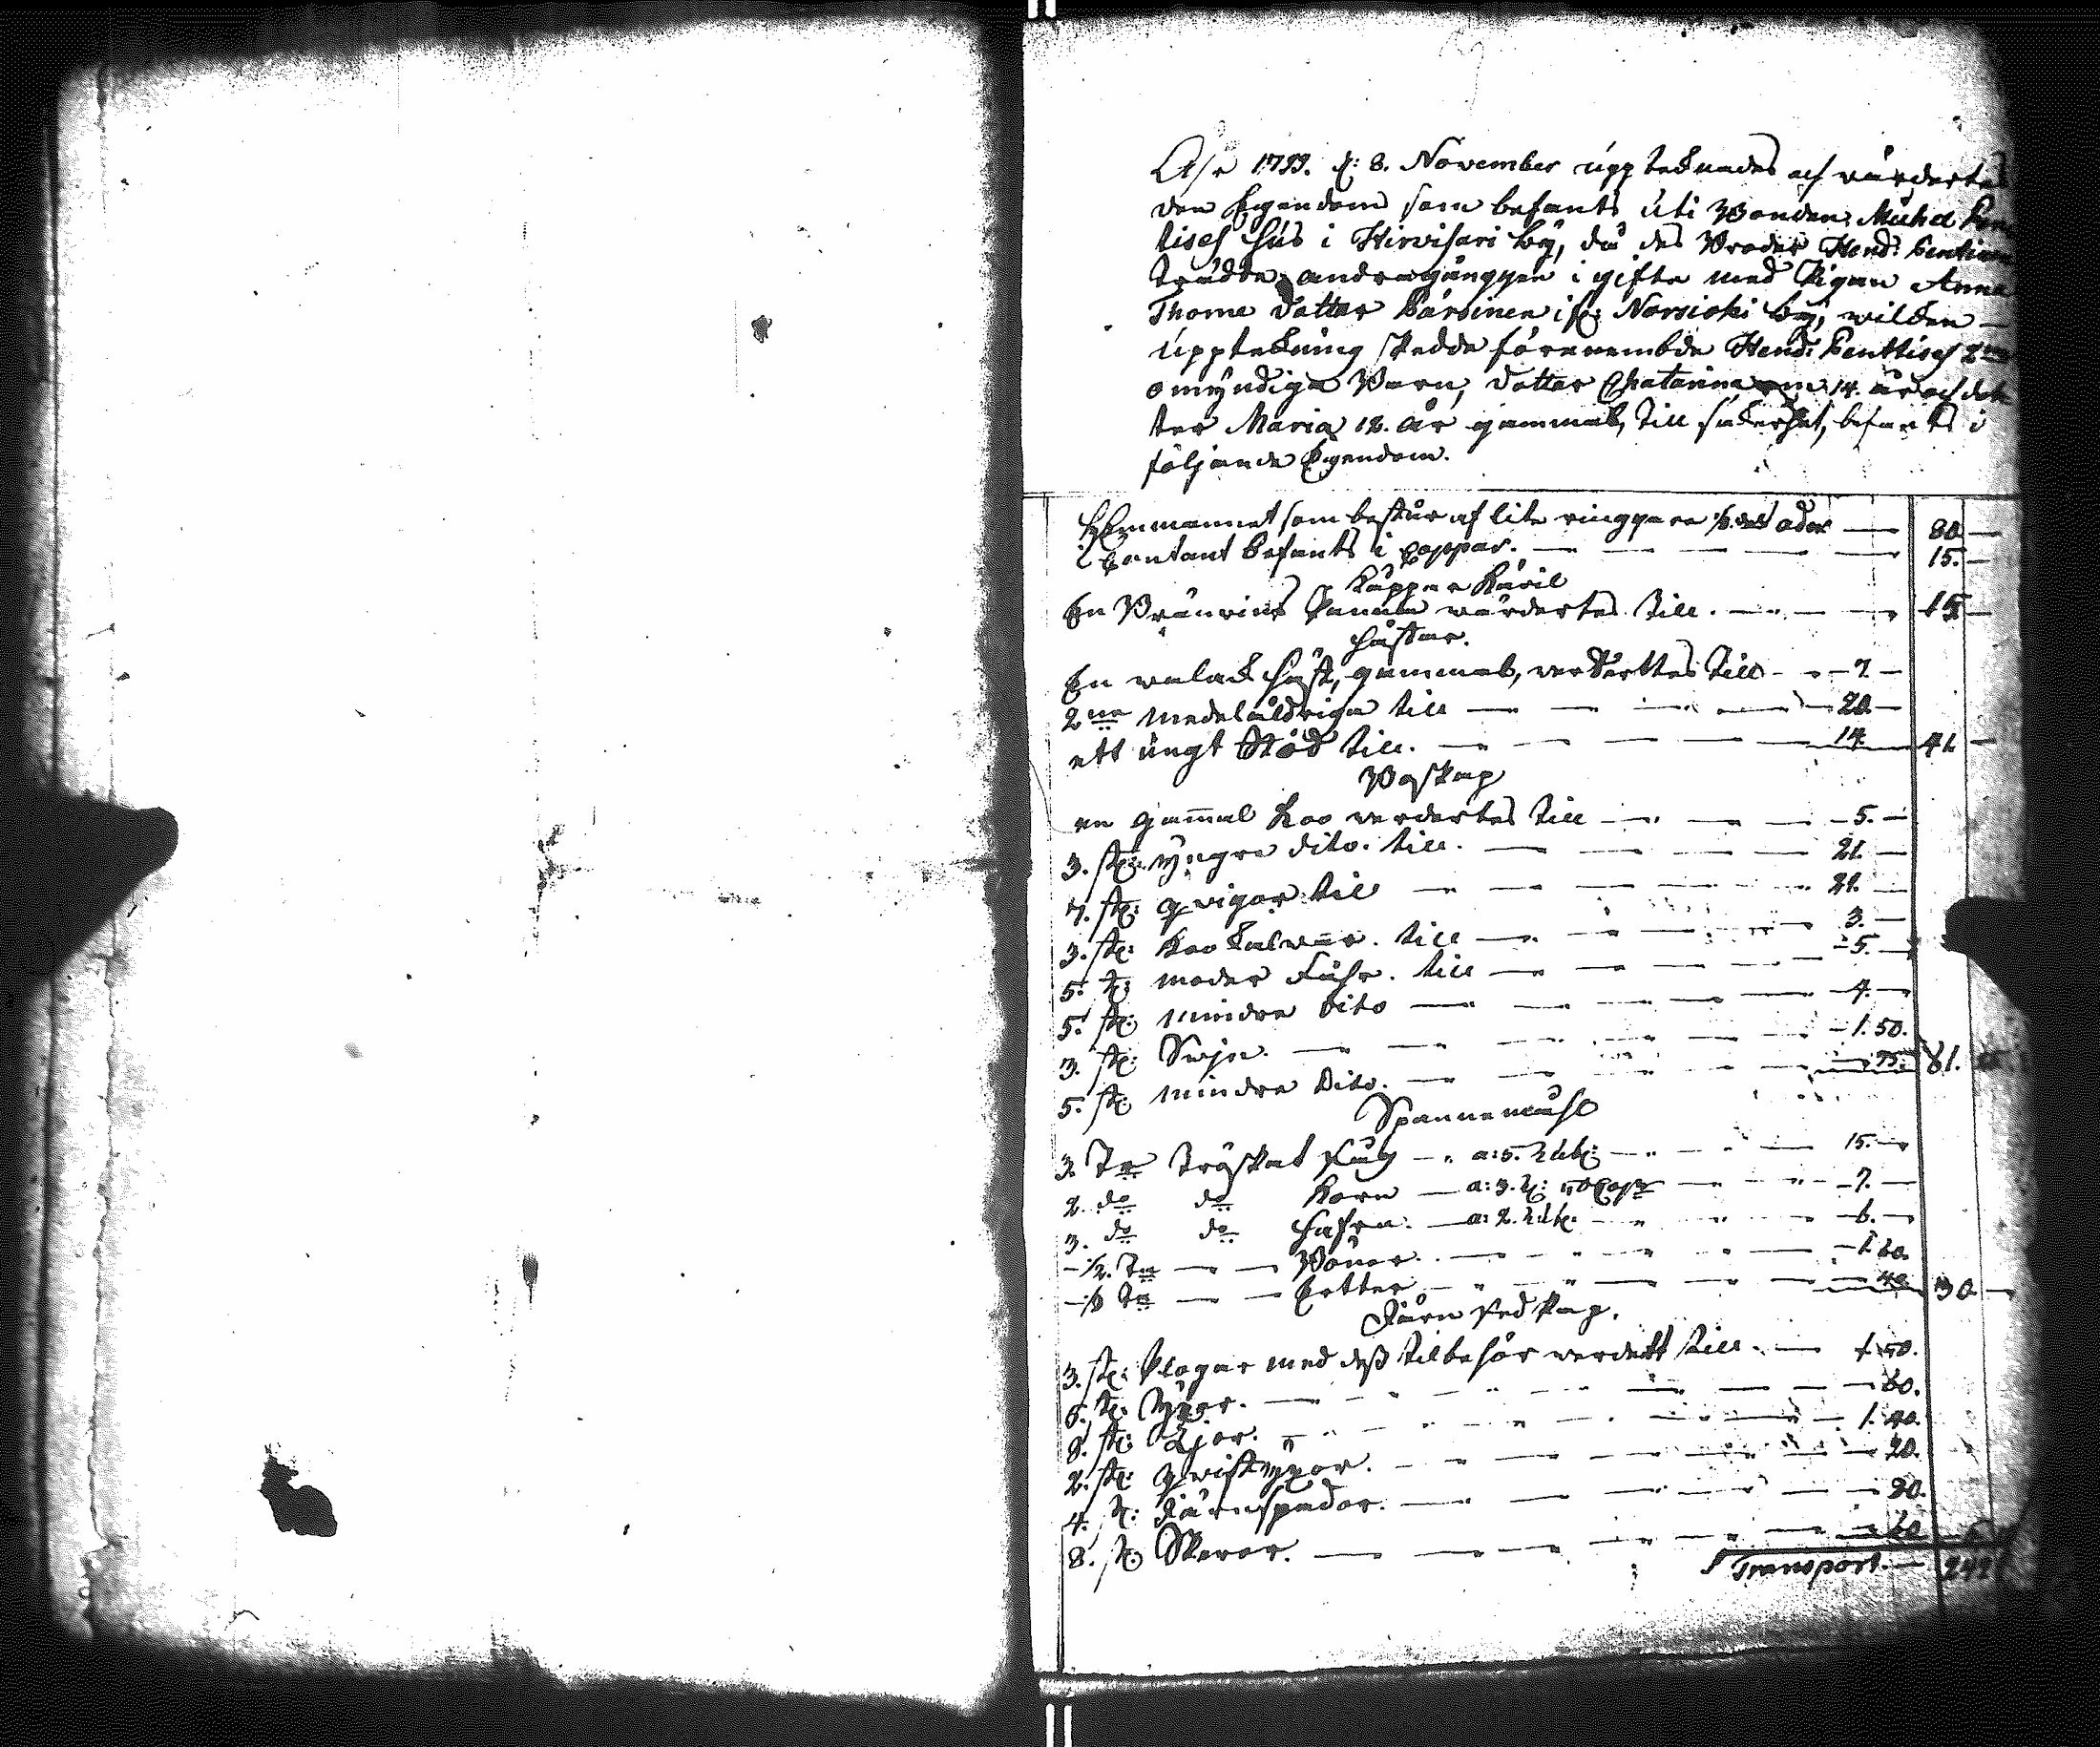 Åhr 1799. d: 8. November upptecknades och värdertes
den Egendom som befants uti Bonden Michel Pen
tises hus i Hirvisari by, då des Broder Hend: Penttinen
trädde andragången i gifte med Pigan Anna
Thome dotter Pärsinen i fr: Norsioki by, wilken
upptekning skedde förenembde Hend: Penttises 2ne
omyndiga Barn, dotter Chatarina 14. år och dot
ter Maria 12. år gammal, till säkerhet, befants i
följande Egendom.
Hemmannet som består af lite ringare ader — 80 —
Contant befants i Coppar. — 15. —
Koppar Käril
En Bränvins Panna värdertes till. — 15 —
Hästar.
En walack Häst, gammal, verderttes till — 7 —
2ne medelåldriga till — 20 —
ett ungt Stod till. — 14 41 —
Boskap
en gammal Koo verdertes till — 5. —
3. st: yngre dito. till. — 21. —
7. st: qvigor till — 21. —
3. st: Koo Kalvar. till — 3. —
5. st: moder Fåhr. till — 5. —
5. st: mindre dito — 4. —
3. st: Swjn. — 1. 50.
5. st: mindre Dito. — 75. 81.
Spannemåhl
3. Tr Tröskat Råg — a: 5. Rubl: — 15. —
2. do do Korn — a: 3. R: 50 Cop — 7. —
3. do do Hafra. — a: 2. Rubl. — 6. —
1/2. Tn — Bönor. — 1. 60.
Tn — Ertter — 40 30 —
Järn Redskap.
3. st: Plogar med dess tilbehör verdertt till. — 1 50.
6. st: Yxor. — 60.
8. st: Ljor. — 1. 40.
2. st: qvistyxor. — 20.
4. st: Järnspador. — 20.
8. st: Skeror. — 60
Transport. — 242